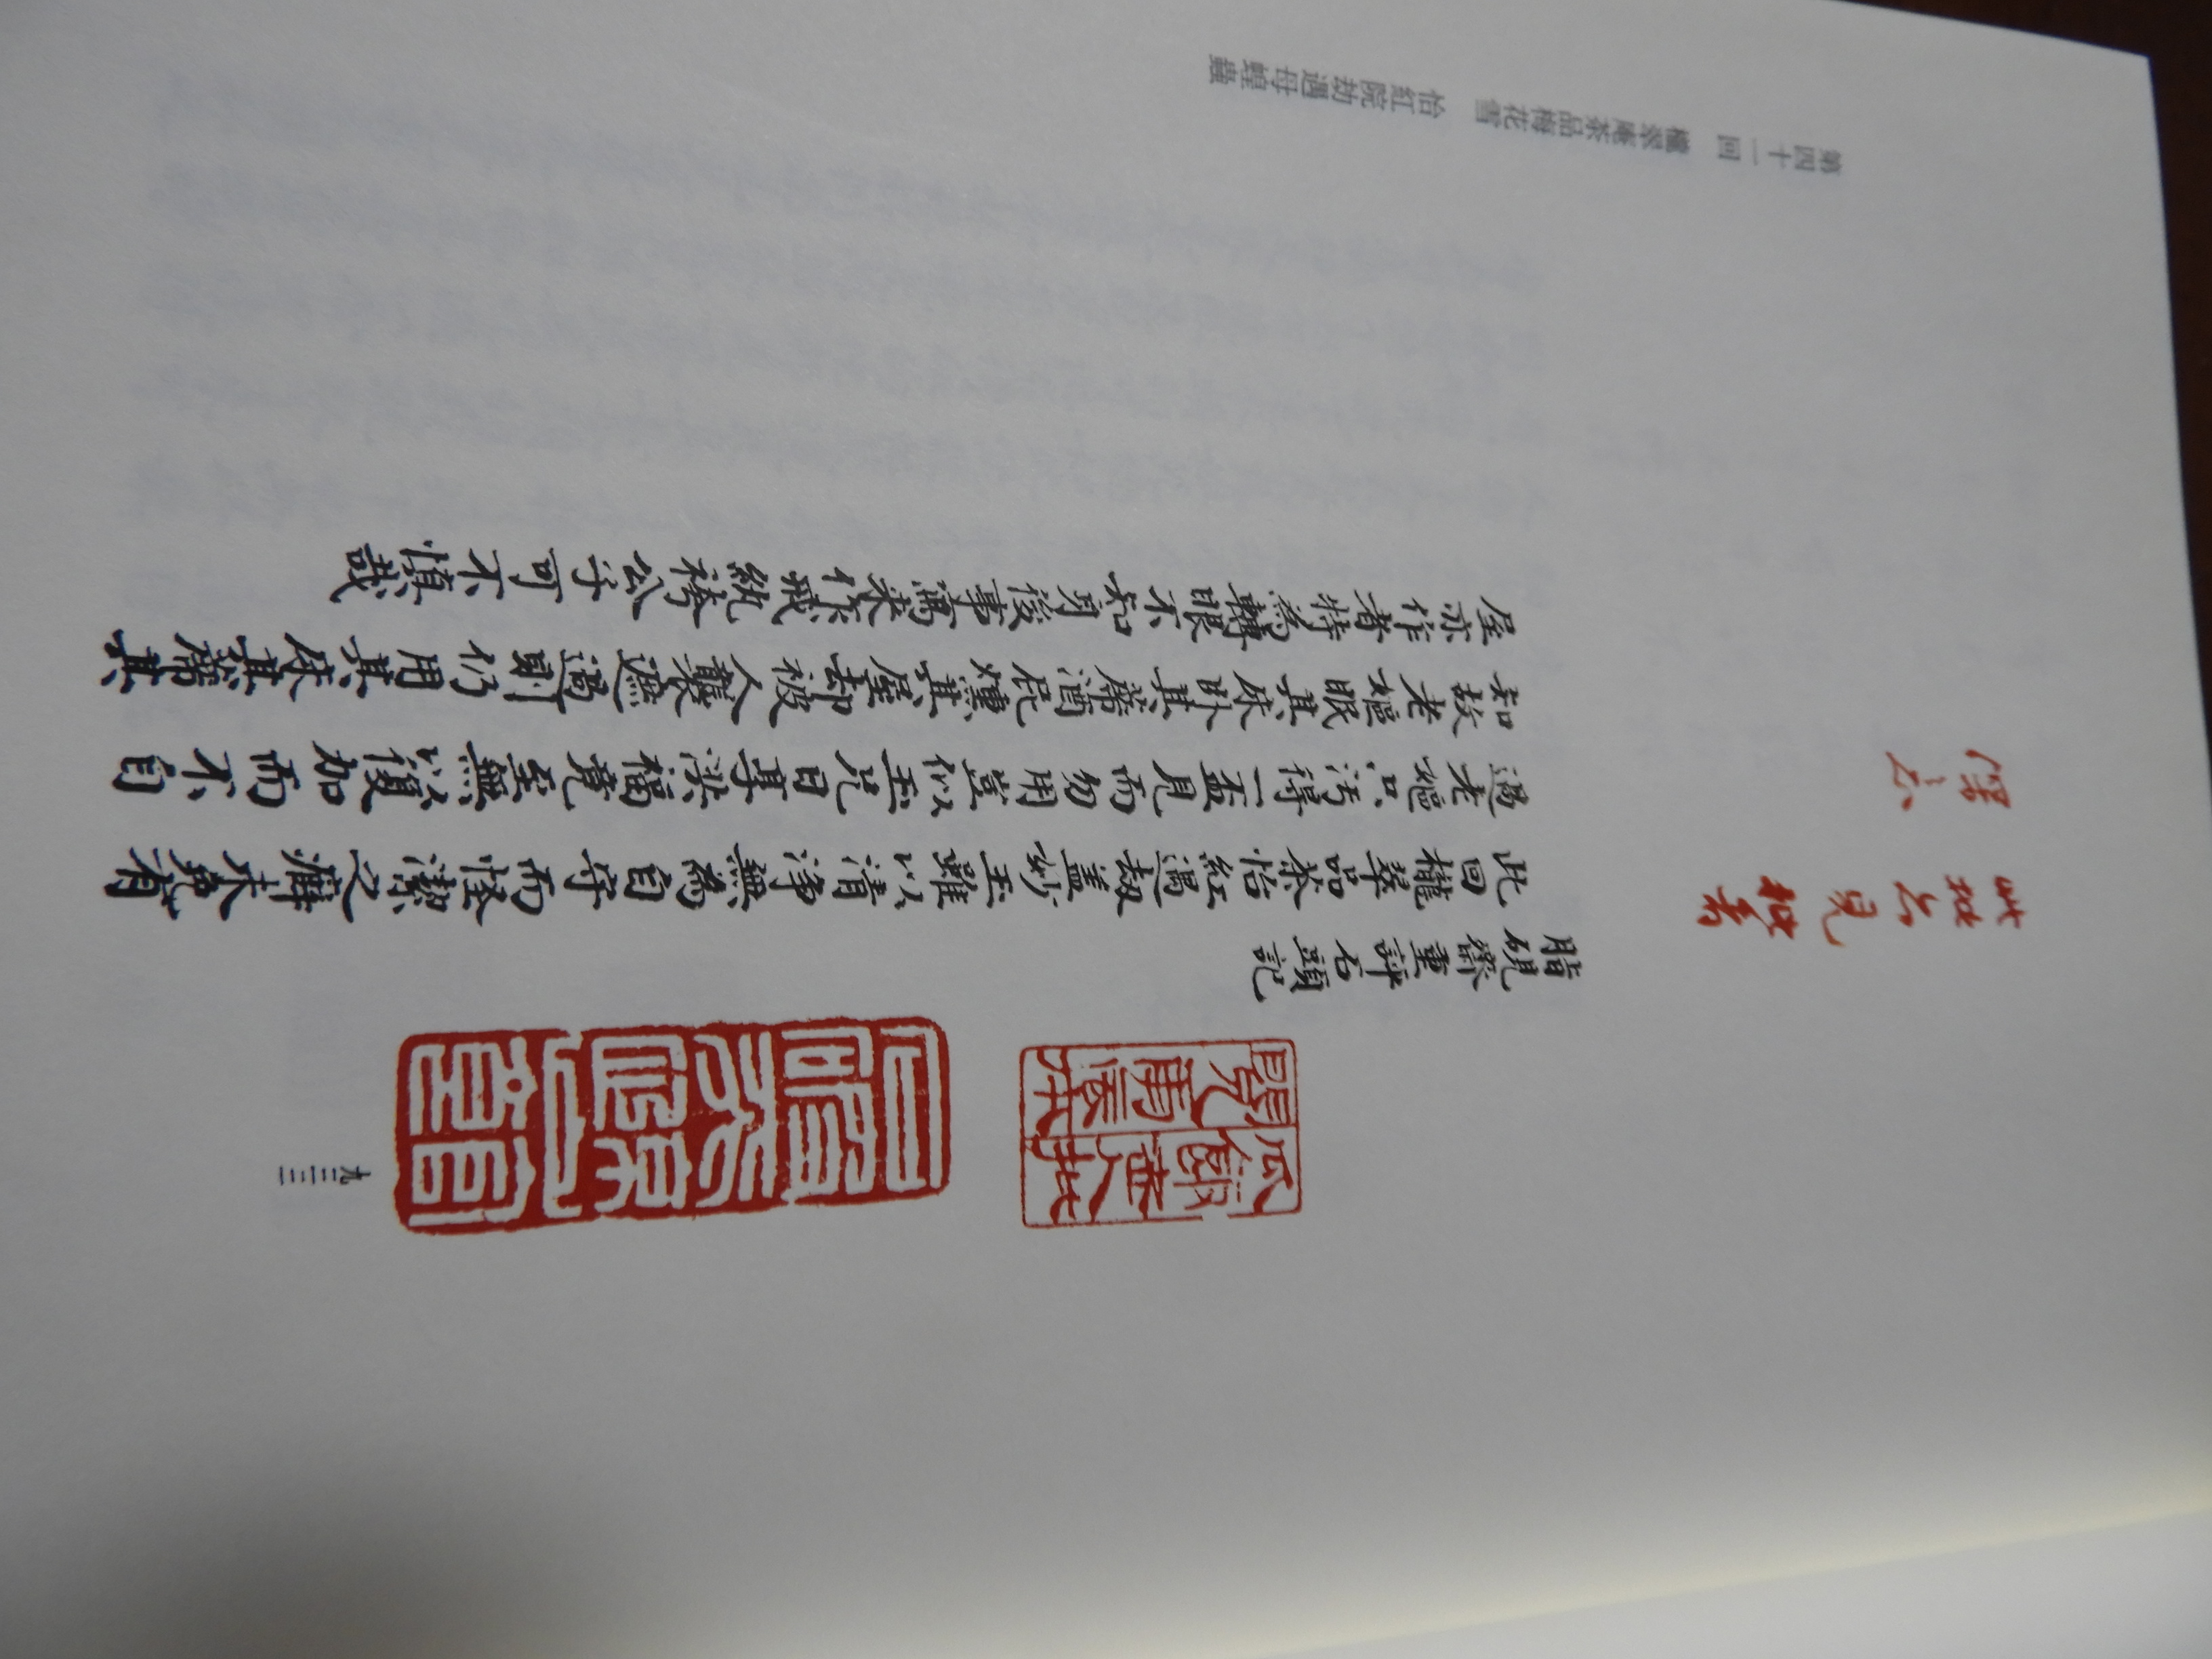 瓜飯老人批
閱庚辰本
九三三
脂硯齋重評石頭記
此回櫳翠品茶怡紅遇劫盖妙玉雖以清净無為自守而怪潔之癖未免有
過老嫗只汚得一盃見而勿用豈似玉兄日享洪福竟至無以復加而不自
知故老嫗眠其床卧其蓆酒屁燻其屋却被人襲遮過則仍用其床其蓆其
屋亦作者特為轉眼不知身後事寫来作戒紈袴公子可不慎哉
此批亦見批者
深意
第四十一回 櫳翠庵茶品梅花雪 怡紅院劫遇母蝗蟲